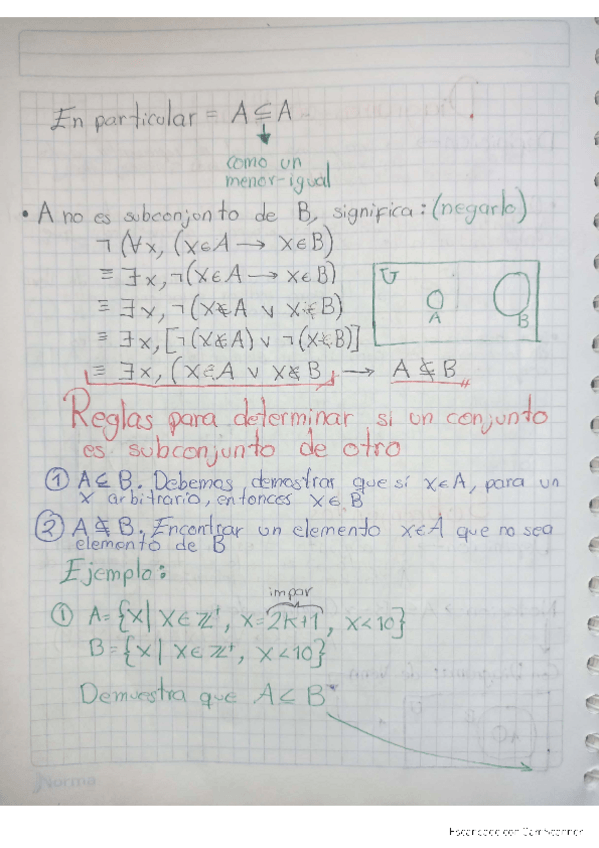 En particular = A ⊆ A
como un
menor-igual
• A no es subconjunto de B, significa: (negarlo)
¬ (∀x, (x∈A → x∈B)
≡ ∃x, ¬(x∈A → x∈B)
≡ ∃x, ¬(x∉A ∨ x∈B)
≡ ∃x, [¬(x∉A) ∨ ¬(x∈B)]
≡ ∃x, (x∈A ∨ x∉B → A ⊈ B
U
A
B
Reglas para determinar si un conjunto
es subconjunto de otro
① A⊆B. Debemos demostrar que si x∈A, para un
x arbitrario, entonces x∈B
② A⊈B. Encontrar un elemento x∈A que no sea
elemento de B
Ejemplo:
impar
① A={x| x∈ℤ⁺, x=2k+1, x<10}
B={x| x∈ℤ⁺, x<10}
Demuestra que A⊂B
Norma
Escaneado con CamScanner